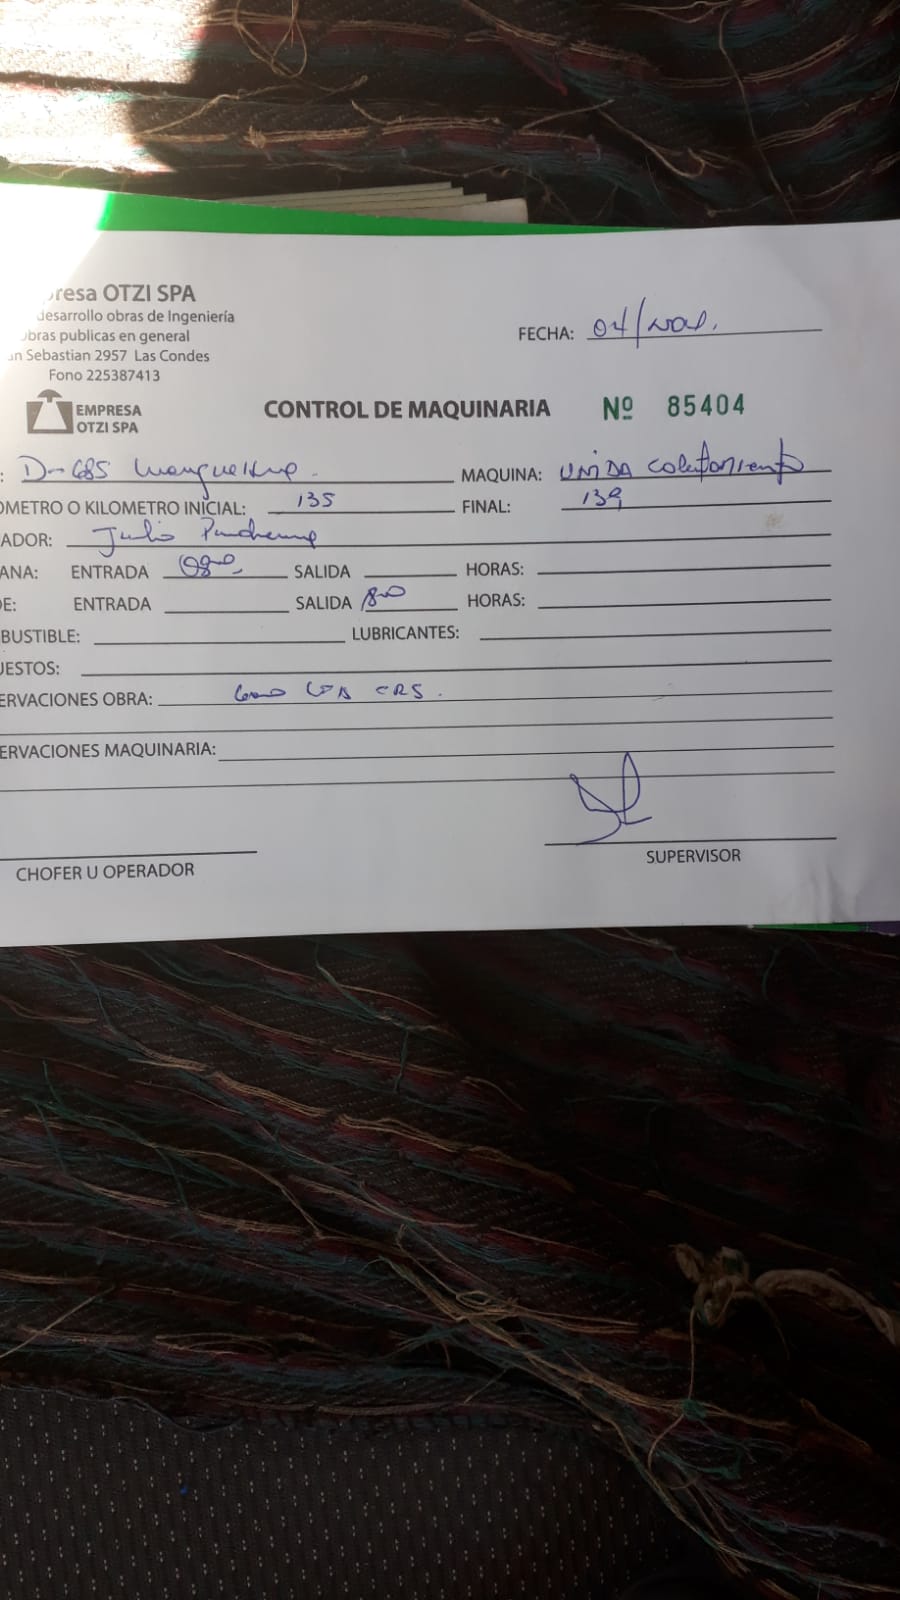 resa OTZI SPA
desarrollo obras de Ingeniería
bras publicas en general
n Sebastian 2957 Las Condes
Fono 225387413
EMPRESA
OTZI SPA
FECHA: 04/Nov.
CONTROL DE MAQUINARIA Nº 85404
: D-685 MAQUINA:
OMETRO O KILOMETRO INICIAL: 135 FINAL: 139
ADOR: Julio
ANA: ENTRADA SALIDA HORAS:
E: ENTRADA SALIDA HORAS:
BUSTIBLE: LUBRICANTES:
UESTOS:
ERVACIONES OBRA:
ERVACIONES MAQUINARIA:
CHOFER U OPERADOR
SUPERVISOR